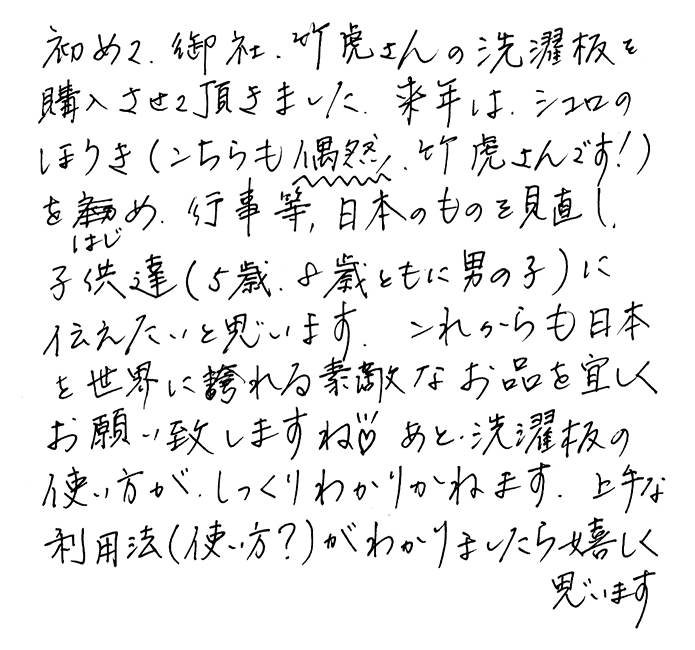 初めて、御社、竹虎さんの洗濯板を
購入させて頂きました。来年は、シュロの
ほうき(こちらも偶然、竹虎さんです!)
をはじめ、行事等、日本のものを見直し、
子供達(5歳、8歳ともに男の子)に
伝えたいと思います。これからも日本
を世界に誇れる素敵なお品を宜しく
お願い致しますね♡あと、洗濯板の
使い方が、しっくりわかりかねます。上手な
利用法(使い方?)がわかりましたら嬉しく
思います